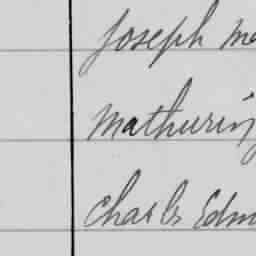 Joseph Ma
Mathurin
Charles Edm